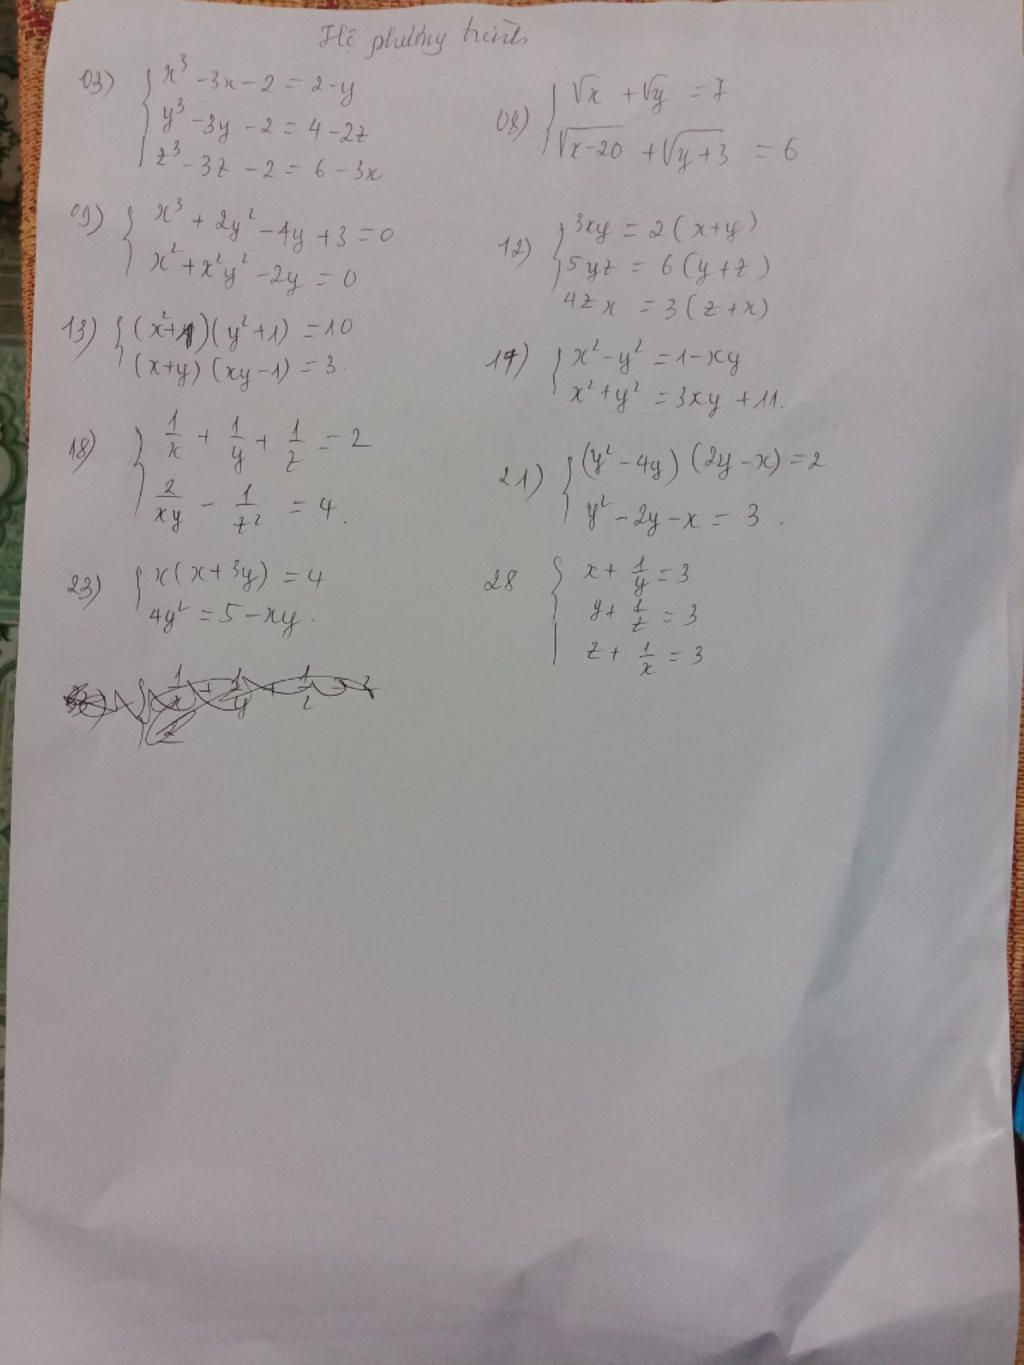 Hệ phương trình
03) { x³ - 3x - 2 = 2 - y
y³ - 3y - 2 = 4 - 2z
z³ - 3z - 2 = 6 - 3x
08) { √x + √y = 7
√x-20 + √y+3 = 6
09) { x³ + 2y² - 4y + 3 = 0
x² + x²y² - 2y = 0
12) { 3xy = 2(x+y)
5yz = 6(y+z)
4zx = 3(z+x)
13) { (x²+1)(y²+1) = 10
(x+y)(xy-1) = 3.
17) { x² - y² = 1 - xy
x² + y² = 3xy + 11.
18) { 1/x + 1/y + 1/z = 2
2/xy - 1/z² = 4.
21) { (y² - 4y)(2y - x) = 2
y² - 2y - x = 3.
23) { x(x+3y) = 4
4y² = 5 - xy.
28 { x + 1/y = 3
y + 1/z = 3
z + 1/x = 3